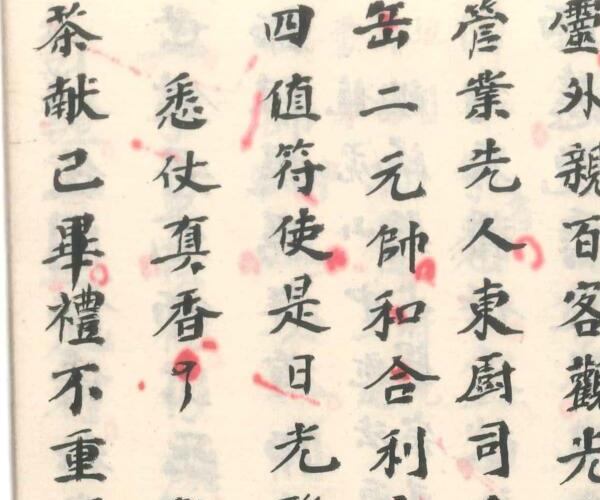 靈外親百客觀光
營業先人東厨司
岳二元帥和合利
四值符使是日光
悉仗真香
茶献己畢禮不重